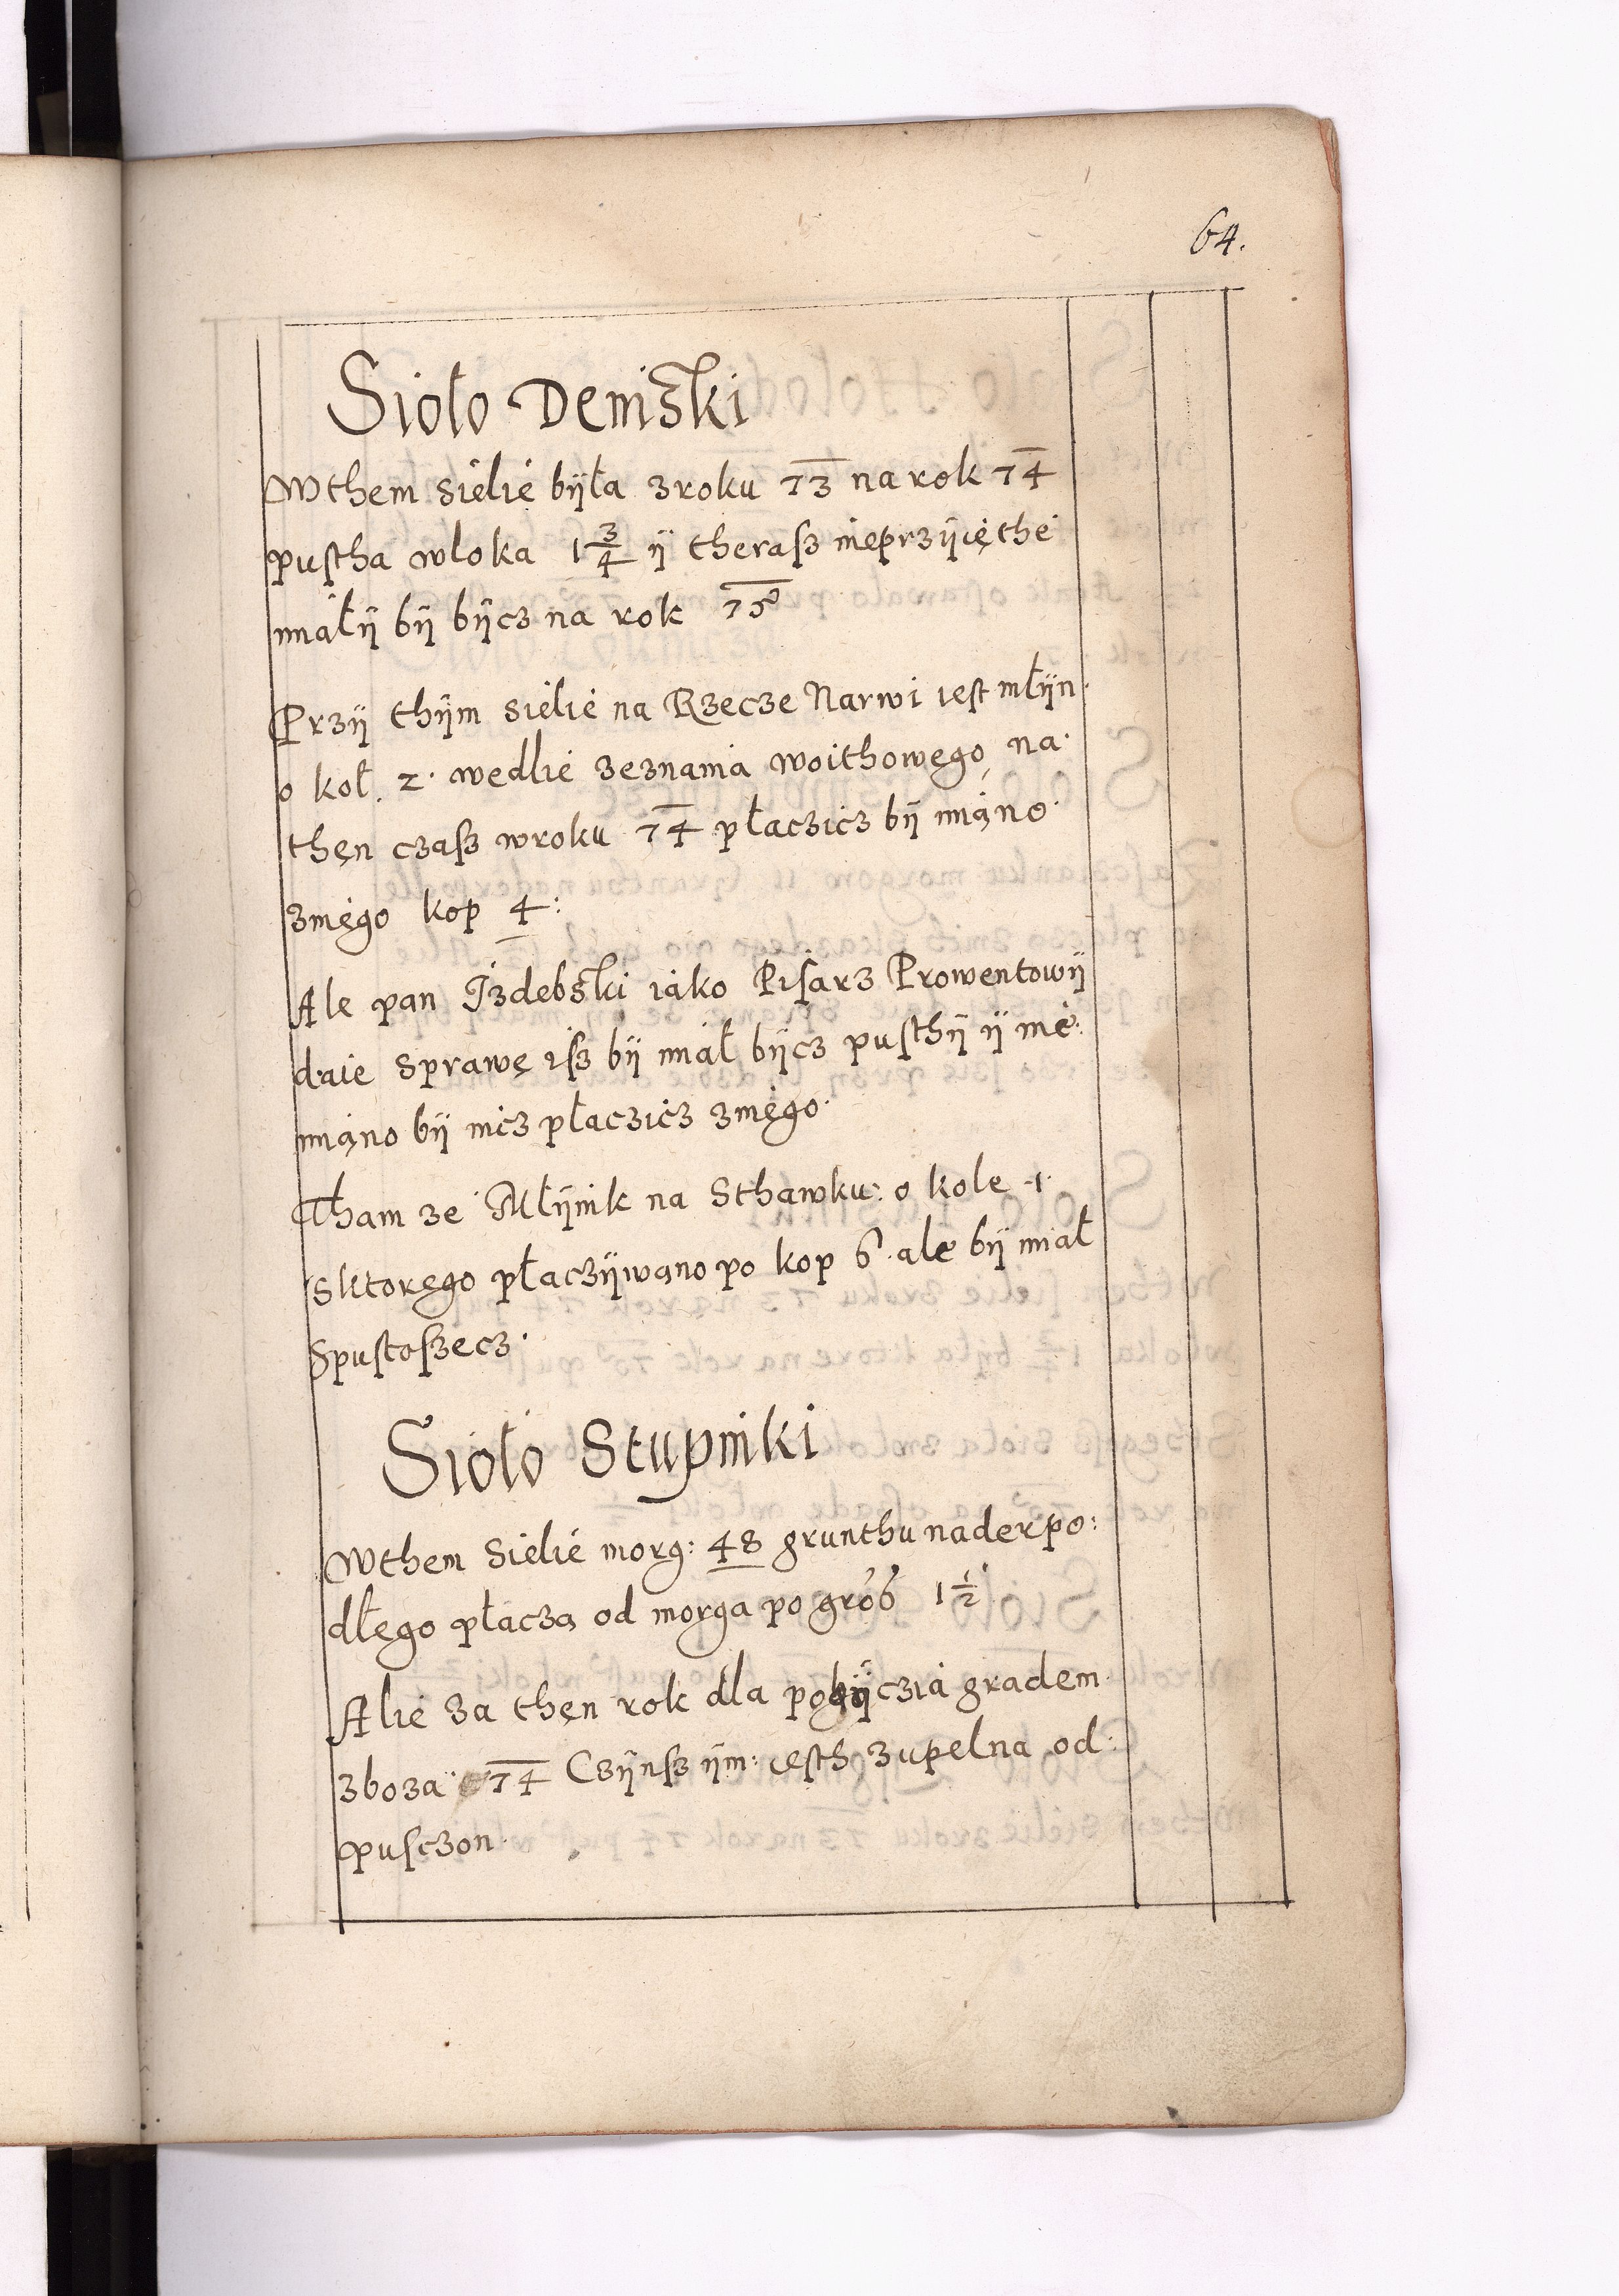 64.
Sioło Deniski
Wthem sielie byłła zroku 73 na rok 74
pustha włoka 1 3/4 ÿ therasz nieprzÿięthe
miałÿ bÿ bÿcz na rok 75
Przÿ thÿm sielie na Rzecze Narwi iest młÿn
o koł. 2. wedlie zeznania woithowego, na
thęn czasz wroku 74 płaczicz bÿ miąno
znięgo kop 4:
Ale pan Izdebski iako Pisarz Prowentowÿ
daie sprawę isz bÿ miał bÿcz pusthÿ ÿ nie:
miąno bÿ nicz płaczicz zniego.
Tham ze Młÿnik na Sthawku: o kole 1.
Sktoręgo płaczÿwąno po kop 6. ale bÿ miał
Spustoszecz.
Sioło Stupniki
Wthem Sielie morg: 48 grunthu naderpo:
dłęgo płaczą od morga po gro 6 1 1/2
Alie za thęn rok dla pobÿczia gradem
zboza 74 Czÿnsz ÿm: iesth zupelna od:
pusczon.